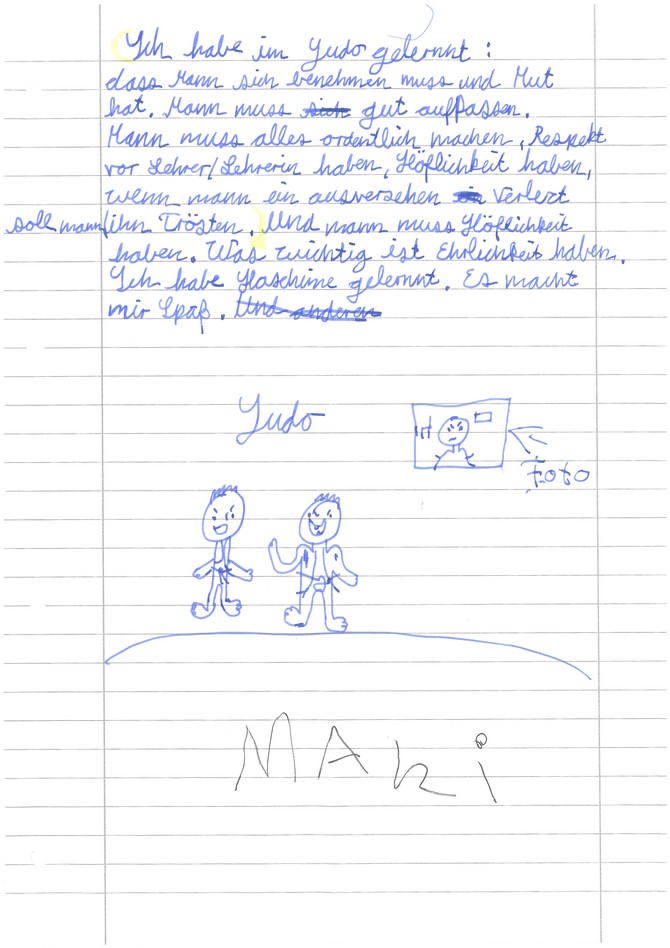 Ich habe im Yudo gelernnt :
dass Mann sich benehmen muss und Mut
hat. Mann muss sich gut auffassen.
Mann muss alles ordentlich machen, Respekt
vor Lehrer/Lehrerin haben, Höflichkeit haben,
wenn mann ein ausversehen Verlezt
soll mann ihn Trösten. Und mann muss Höflichkeit
haben. Was wichtig ist Ehrlichkeit haben.
Ich habe Haschime gelernnt. Es macht
mir Spaß. Und anderen
Yudo
Foto
MAKi